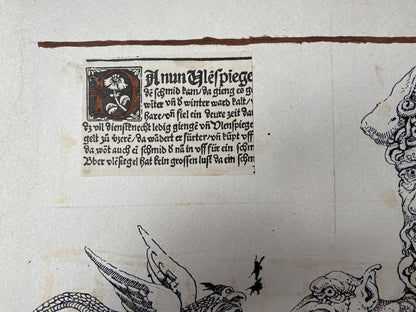 DAnun Vlēspiege
dē schmid kam/da gieng co g
wīter vn̄ d winter ward kalt/
hare/vn̄ fiel ein deure zeit da
dz vil dienstknecht ledig giengē vn̄ Vlenspiege
gelt zů v̈zerē/da wādert er fürter/vn̄ kūpt vff
da wōt auch eī schmid d nā in vff für ein schm
Vber vlēsiegel hat kein grossen lust da ein schm